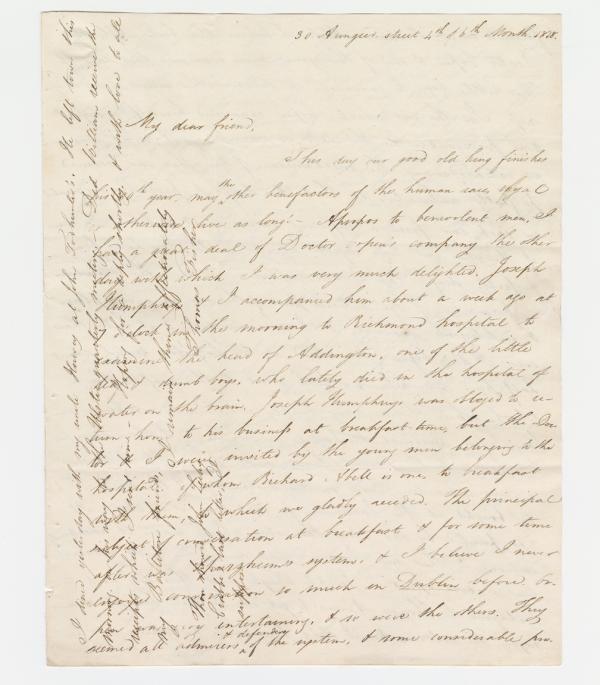 30 Aungier street 4th of 6th Month 1818.
My dear friend,
This day our good old king finishes
his year, may the other benefactors of the human race, loyal
or otherwise live as long! - Apropos to benevolent men, I
had a great deal of Doctor Orpen's company the other
day with which I was very much delighted. Joseph
Humphreys & I accompanied him about a week ago at
o'clock in the morning to Richmond hospital to
examine the head of Addington, one of the little
deaf & dumb boys, who lately died in the hospital of
water on the brain. Joseph Humphreys was obliged to re-
turn home to his business at breakfast time, but the Doc-
tor & I were invited by the young men belonging to the
hospital, of whom Richard Abell is one, to breakfast
with them, to which we gladly acceded. The principal
subject of conversation at breakfast & for some time
after was Spurzheim's system, & I believe I never
enjoyed conversation so much in Dublin before. Or-
pen was very entertaining, & so were the others. They
seemed all admirers & defenders of the system, & some considerable pro-
I dined yesterday with my uncle Harvey at John Todhunter's. He left town this
morning on his way to the Ulster quarterly meeting. - Did William receive the
receipts which I sent him? - Hoping for a reply shortly, & with love to all
my Ballitore friends, I remain thine affectionately
Thomas Fisher